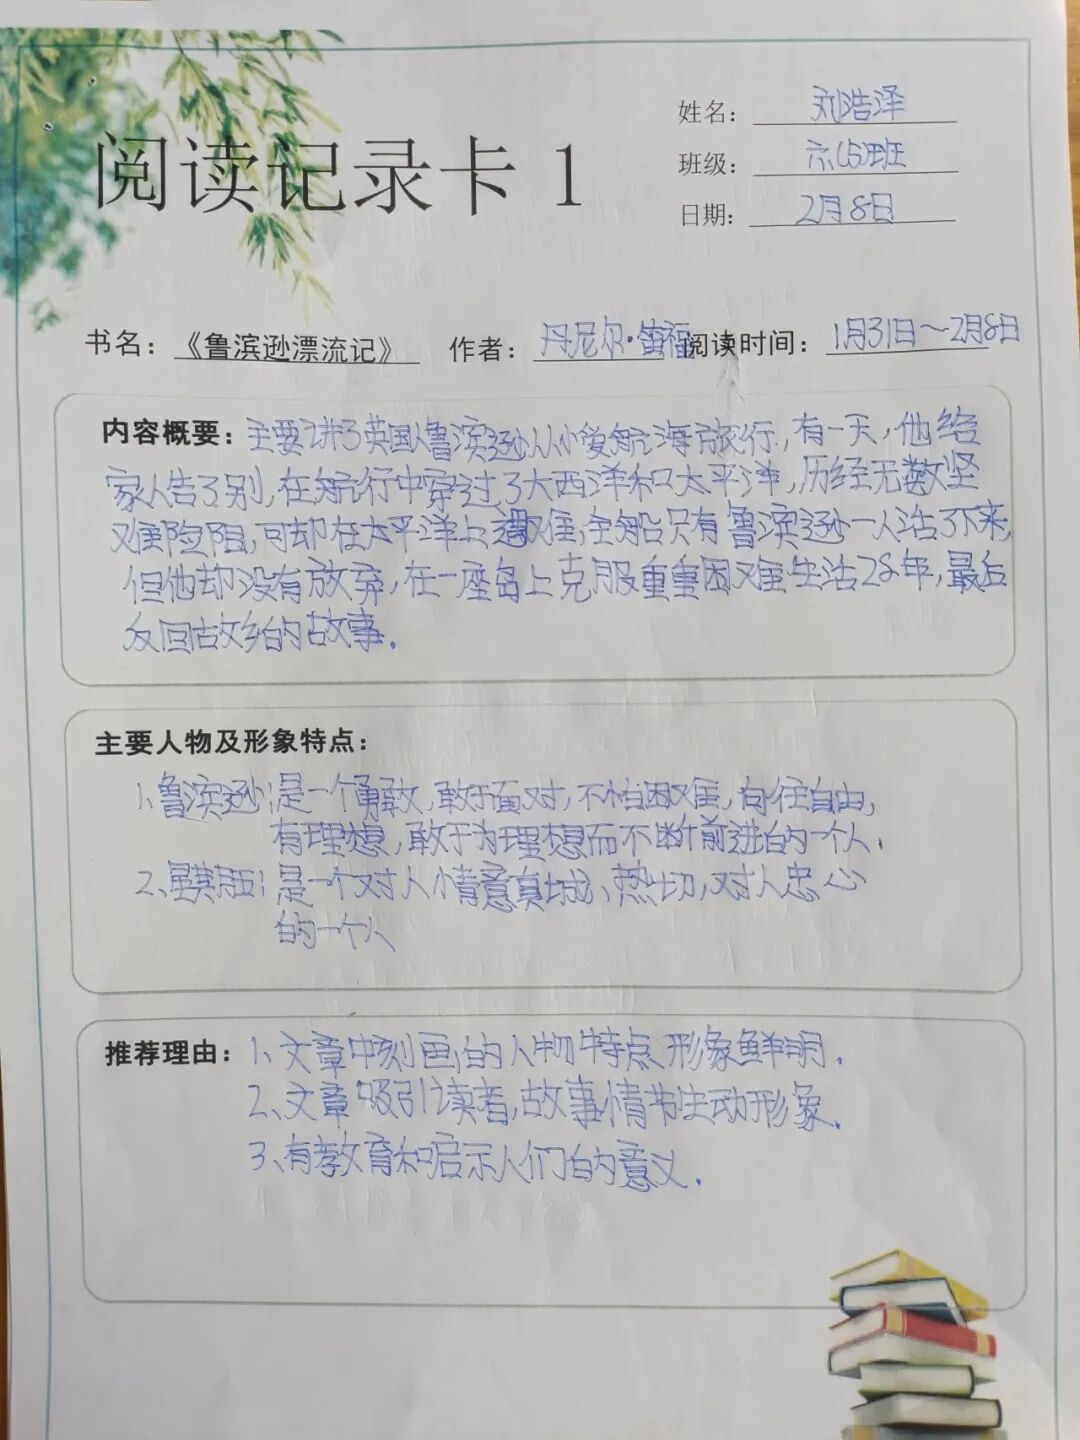 阅读记录卡 1
姓名：刘浩泽
班级：六(5)班
日期：2月8日
书名：《鲁滨逊漂流记》 作者：丹尼尔·笛福 阅读时间：1月31日～2月8日
内容概要：主要讲了英国人鲁滨逊从小爱航海旅行，有一天，他给
家人告了别，在航行中穿过了大西洋和太平洋，历经无数坚
难险阻，可却在太平洋上遭难，全船只有鲁滨逊一人活了下来，
但他却没有放弃，在一座岛上克服重重困难生活28年，最后
反回故乡的故事.
主要人物及形象特点：
1、鲁滨逊：是一个勇敢，敢于面对，不怕困难，向往自由，
有理想，敢于为理想而不断前进的一个人.
2、星期五：是一个对人情意真城、热切，对人忠心
的一个人
推荐理由：1、文章中刻画的人物特点形象鲜明.
2、文章吸引读者，故事情节生动形象.
3、有教育和启示人们的意义.